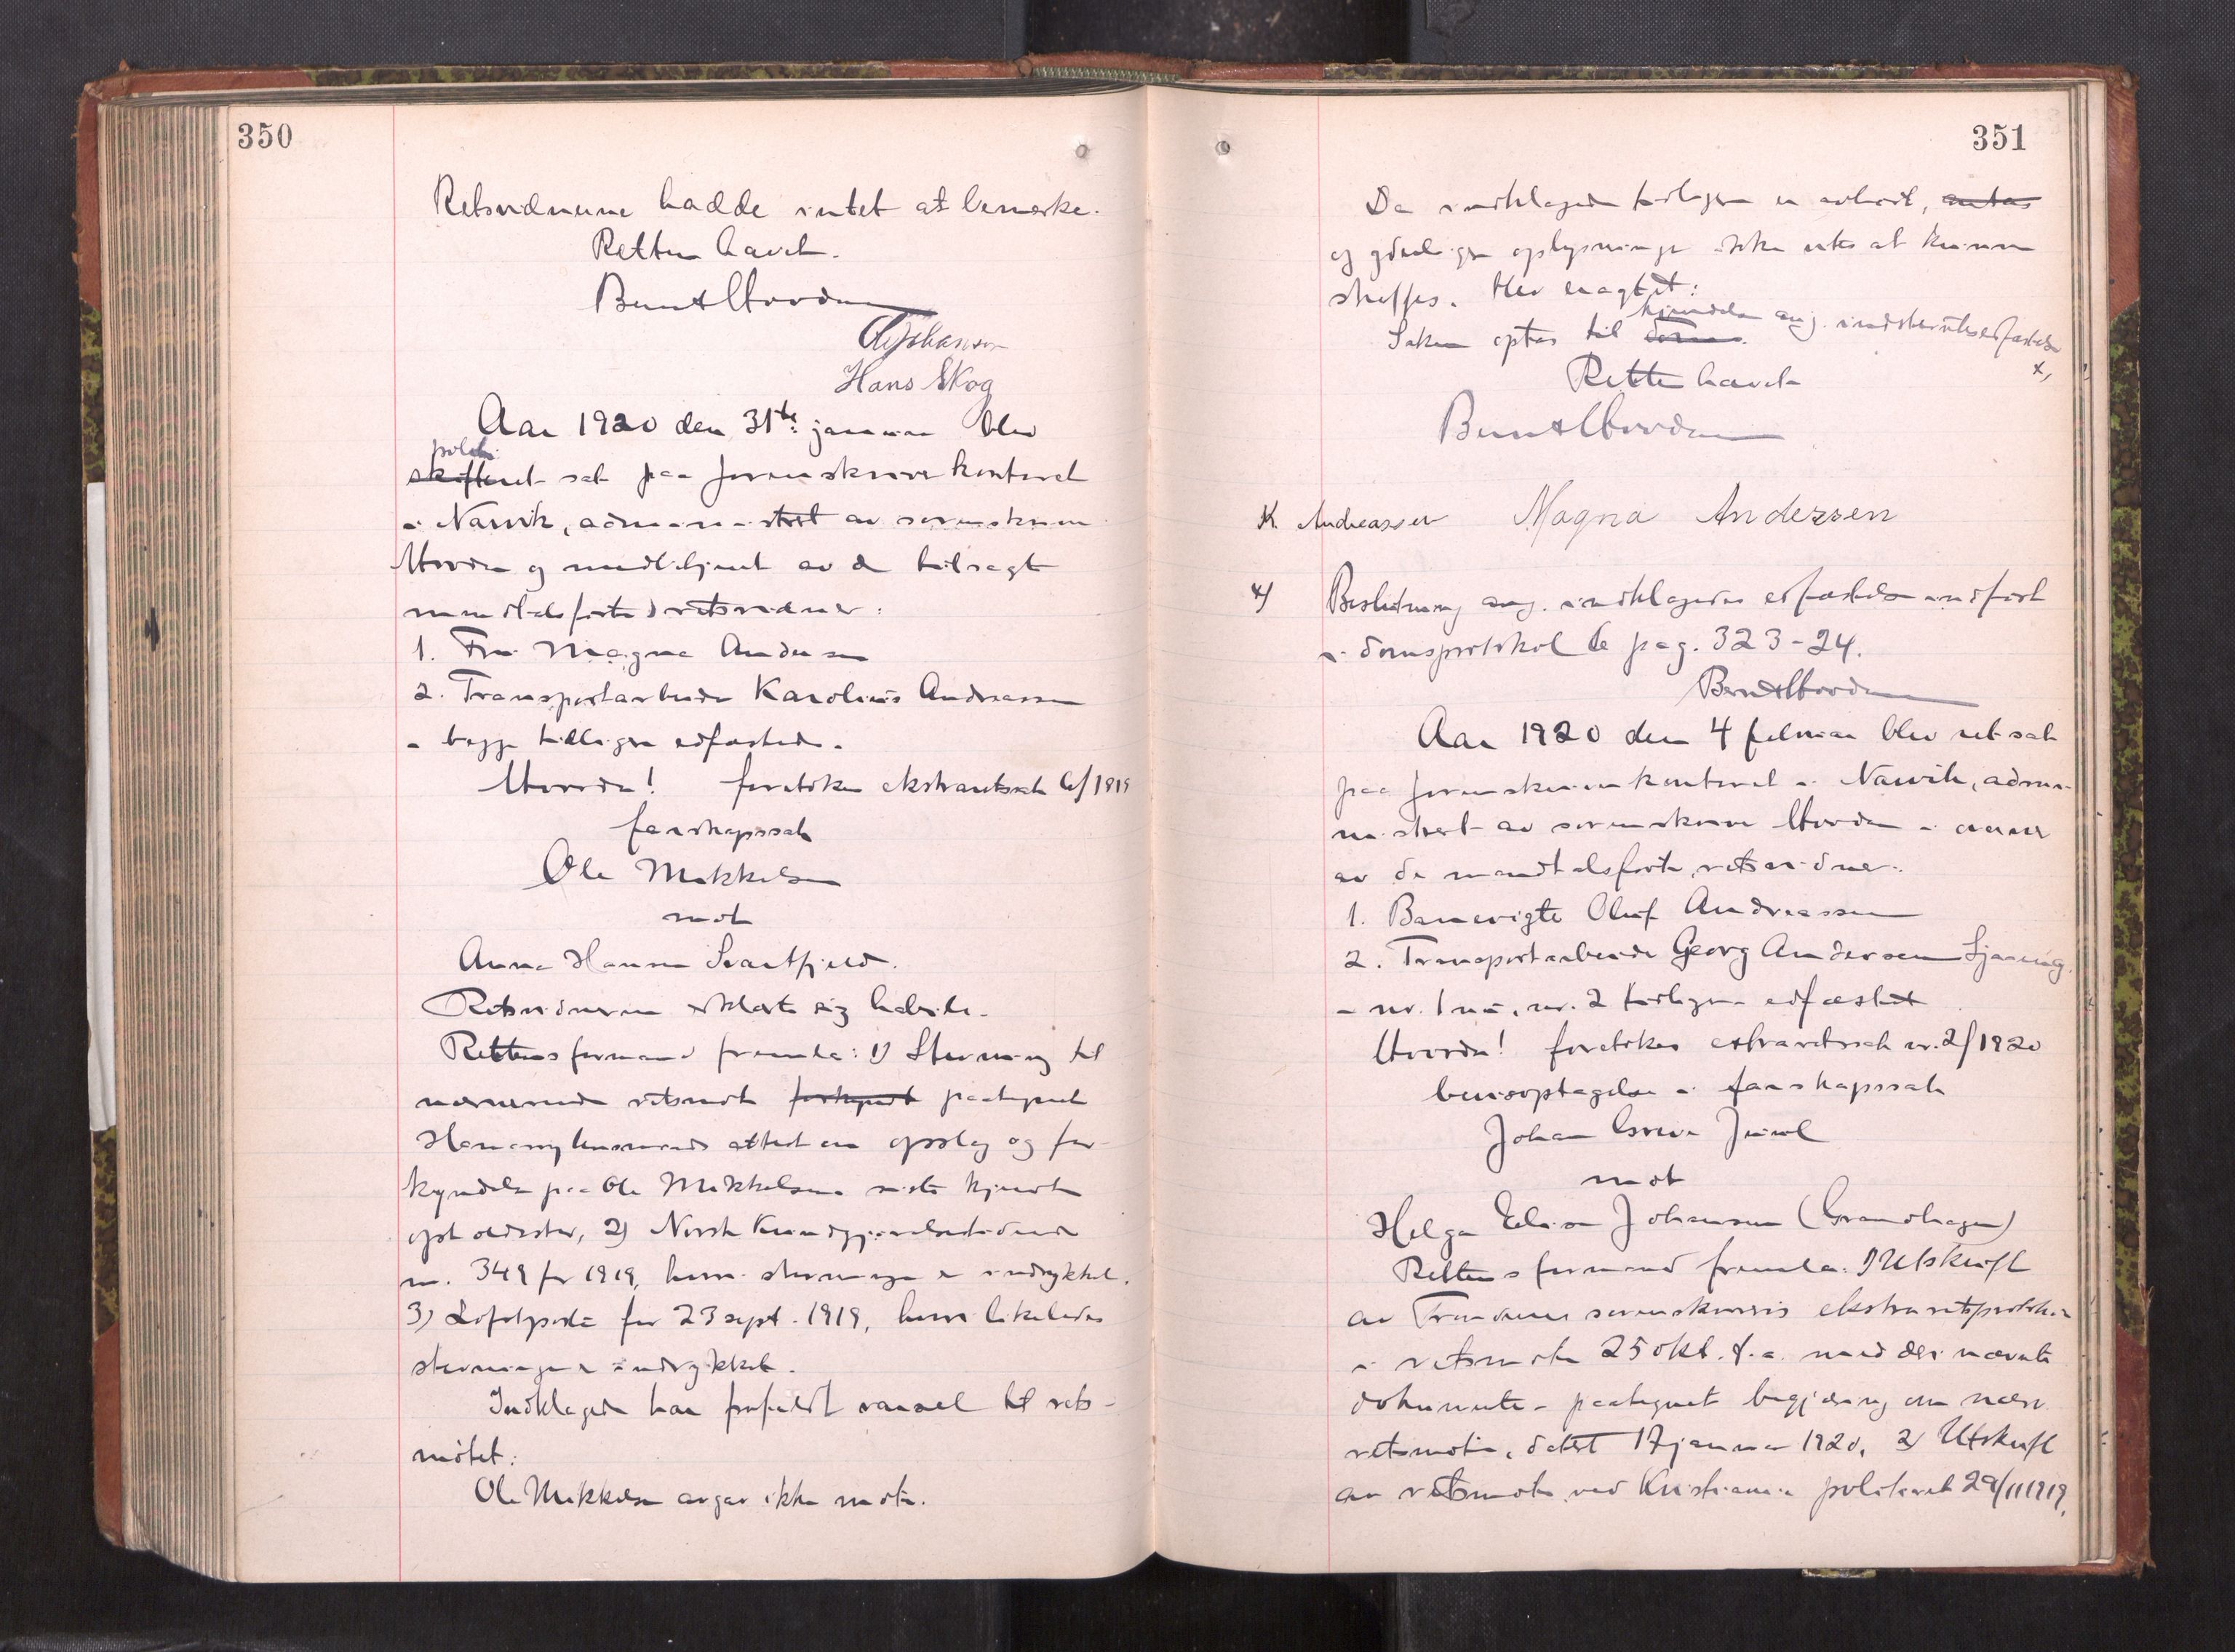 350
Retsvidnerne hadde intet at bemerke.
Retten hævet.
Bernt Hovdan
Hans Skog
Aar 1920 den 31te januar blev
politi
skifteret sat paa sorenskriverkontoret
i Narvik, administrert av sorenskriver
og medbetjent av de tilsagte
mandtalsførte retsvidner:
1. Fru Magna Andersen
2. Transportarbeider Karolius Andreassen
- begge tidligere edfæstede.
Hvorda! foretokes ekstraretssak 6/1919
farskapssak
Ole Mikkelsen
mot
Anna Hanna Svartfjeld.
Retsvidnerne erklærte sig habile.
Rettens formand fremla: 1) Stevning til
nærværende retsmøte forkyndt paategnet
lensmands attest om opslag og for-
kyndelse paa Ole Mikkelsens siste kjendte
opholdssted, 2) Norsk Kundgjørelsestidende
nr. 349 for 1919, hvori stevningen er indrykket.
3) Lofotposten for 23 sept. 1919, hvori likeledes
stevningen er indrykket.
Indklagede har frafaldt varsel til rets-
møtet.
Ole Mikkelsen avgav ikke møte.
351
Da indklagede tidligere er avhørt, antas
og yderligere oplysninger ikke antas at kunne
skaffes. Blev eragtet:
kjendelse ang. indstevntes edfæstelse
Saken optas til doms.
x)
Retten hævet
Bernt Hovdan
K. Andreassen Magna Andersen
x) Beslutning ang. indklagedes edfæstelse indført
i domsprotokol 6 pag. 323-24.
Bernt Hovdan
Aar 1920 den 4 februar blev ret sat
paa sorenskriverkontoret i Narvik, admi-
nistrert av sorenskriver i nærvær
av de mandtalsførte retsvidner:
1. Banevigte Oluf Andreassen
2. Transportarbeider Georg Andersen
- nr. 1 nu, nr. 2 tidligere edfæstet
Hvorda! foretokes extraretssak nr. 2/1920
bevisoptagelse i farskapssak
Johan Greve Juul
mot
Helga Elise Johansen (Grandhagen)
Rettens formand fremla: 1) Utskrift
av Trondenes sorenskriveris ekstraretsprotokol
i retsmøte 25 okt. f.a. med der nævnte
dokumenter - paategnet begjæring om nærv.
retsmøte, datert 17 januar 1920, 2) Utskrift
av retsmøte ved Kristiania politiret 29/11 1919,